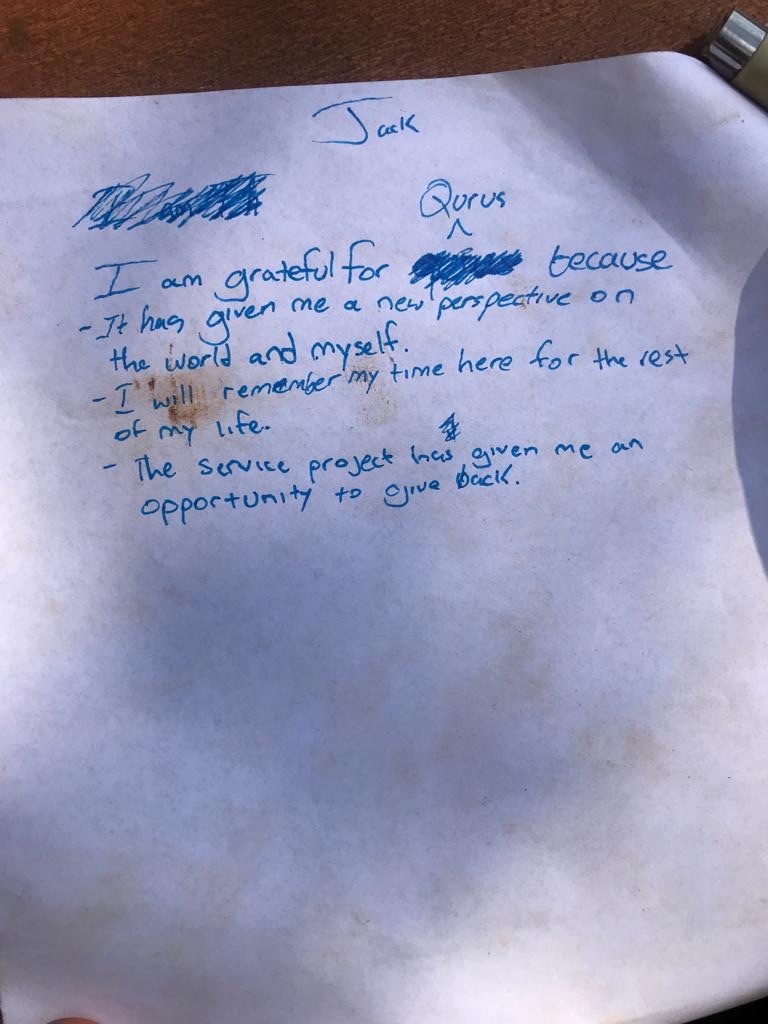 Jack
Qurus
^
I am grateful for because
- It has given me a new perspective on
the world and myself.
- I will remember my time here for the rest
of my life.
- The service project has given me an
opportunity to give back.